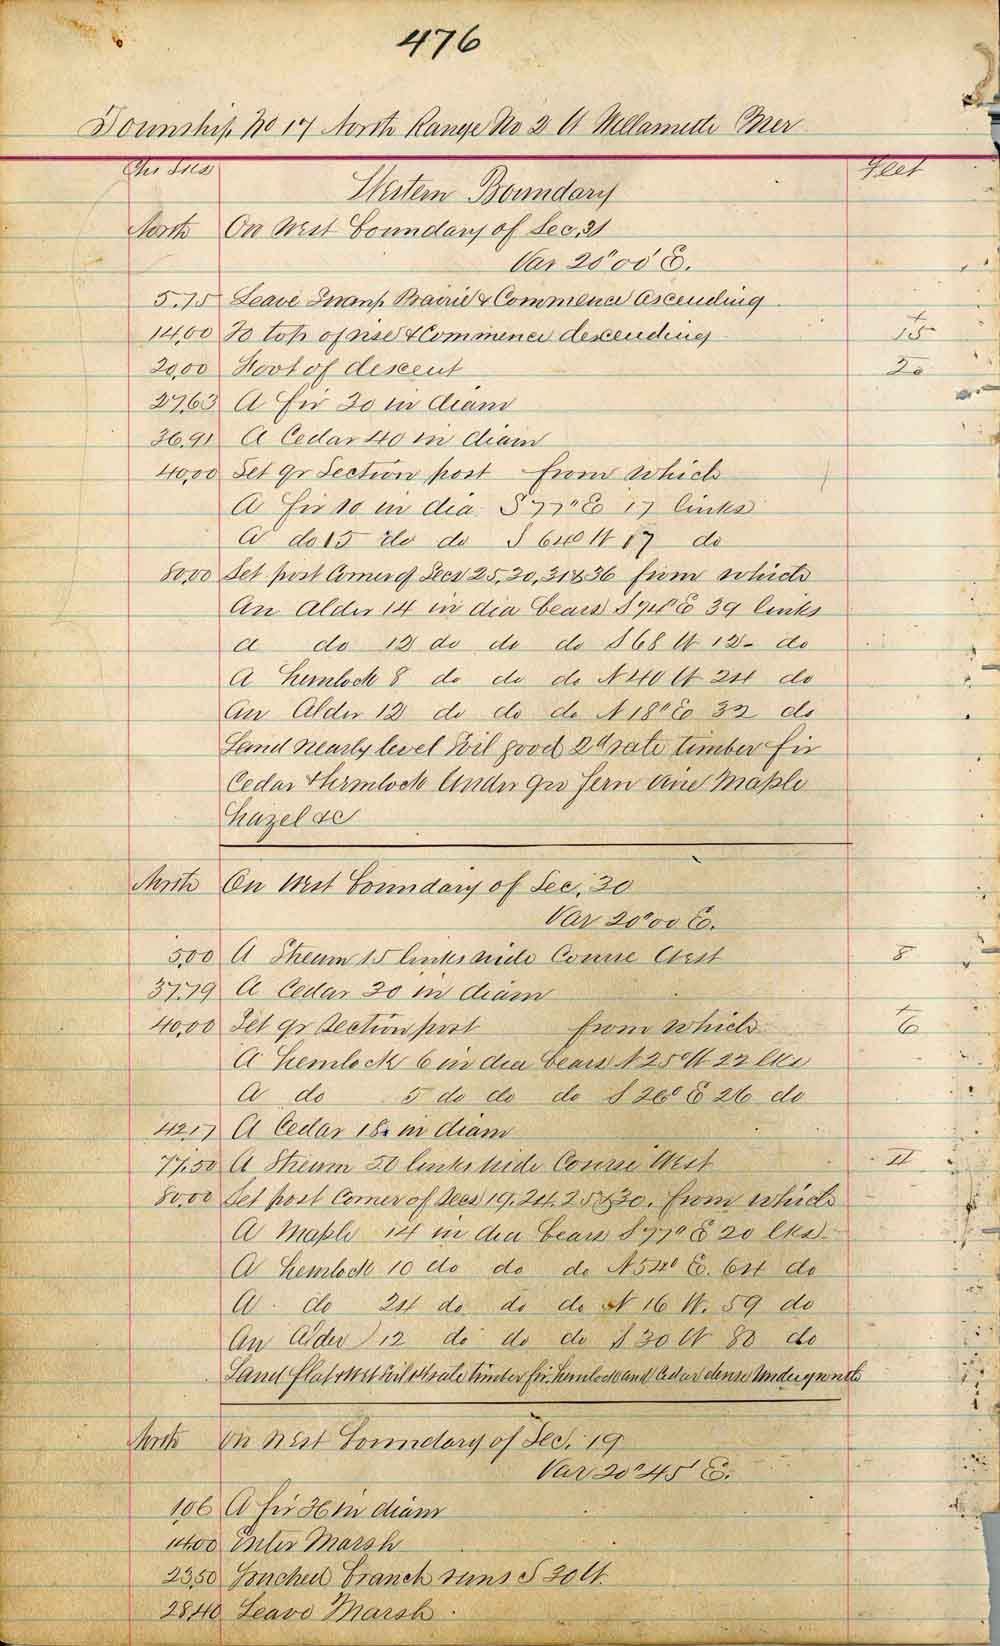 476
Township No 17 North Range No 2 W Willamette Mer
Chs Lks Feet
Western Boundary
North On West boundary of Sec. 31
Var 20°00' E.
5.75 Leave Swamp Prairie & Commence ascending
14.00 To top of rise & Commence descending + 15
20.00 Foot of descent - 20
27.63 A fir 30 in diam
36.91 A Cedar 40 in diam
40.00 Set qr Section post from which
A fir 10 in dia S 77° E 17 links
A do 15 do do S 64° W 17 do
80.00 Set post Corner of Secs 25, 30, 31 & 36 from which
An Alder 14 in dia bears S 74° E 39 links
a do 12 do do do S 68 W 12 do
A hemlock 8 do do do N 40 W 24 do
An Alder 12 do do do N 18° E 32 do
Land nearly level Soil good 2d rate timber fir
Cedar & hemlock Under gro fern vine Maple
hazel &c
North On West boundary of Sec. 30
Var 20°00 E.
5.00 A Stream 15 links wide Course West 8
37.79 A Cedar 30 in diam
40.00 Set qr Section post from which + 6
A hemlock 6 in dia bears N 25° W 22 lks
A do 5 do do do S 26° E 26 do
42.17 A Cedar 18 in diam
77.50 A Stream 50 links wide Course West - 4
80.00 Set post Corner of Secs 19. 24. 25 & 30. from which
A Maple 14 in dia bears S 77° E 20 lks
A hemlock 10 do do do N 54° E. 64 do
A do 24 do do do N 16 W. 59 do
An Alder 12 do do do S 30 W 80 do
Land flat & wet Soil 1st rate timber fir, hemlock and Cedar dense Undergrowth
North On West boundary of Sec. 19
Var 20°45' E.
1.06 A fir 36 in diam
14.00 Enter Marsh
23.50 branch runs S 30 W.
28.40 Leave Marsh.